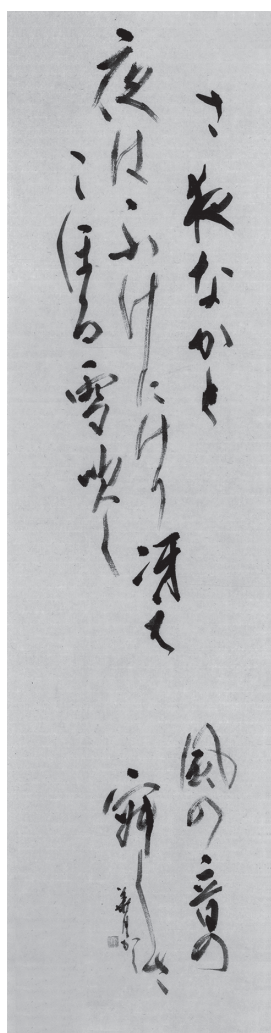 さ夜なかと
夜はふけにけり冴え
こほる雪吹く
風の音の
寂しさ